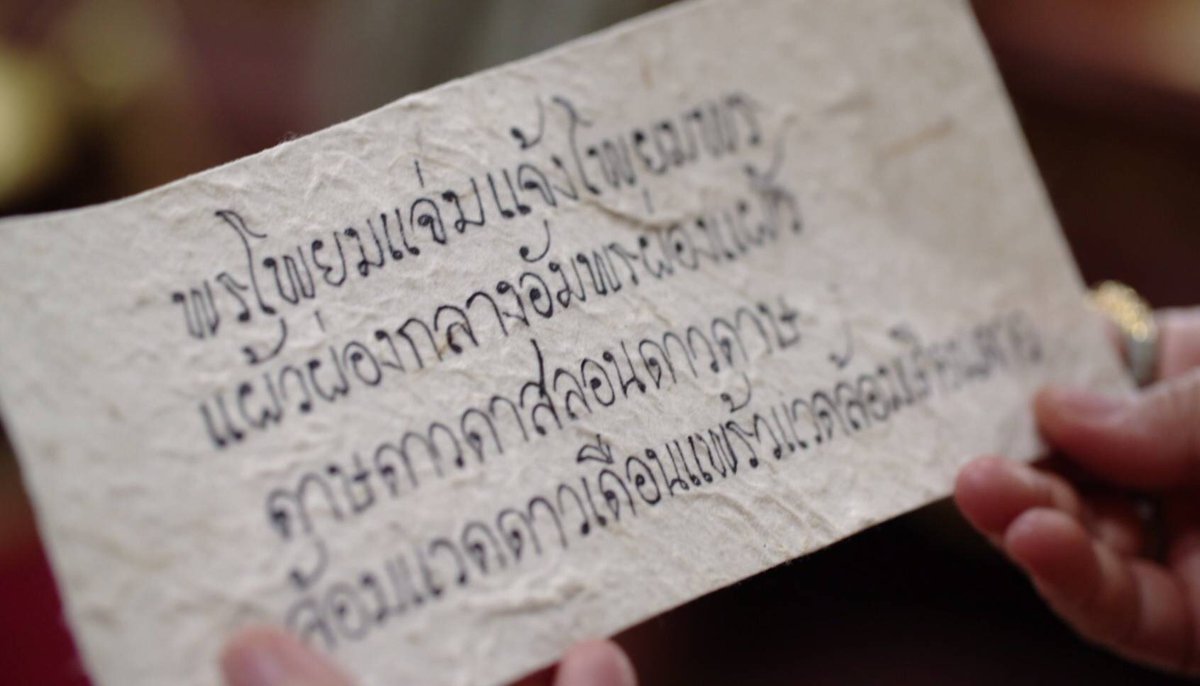 พรโพยมแจ่มแจ้งโพยมพร
แผ้วผ่องกลางอัมพรผ่องแผ้ว
ดาษดาวดาสลอนดาวดาษ
ล้อมแวดดาวเดือนแพร้วแวดล้อม